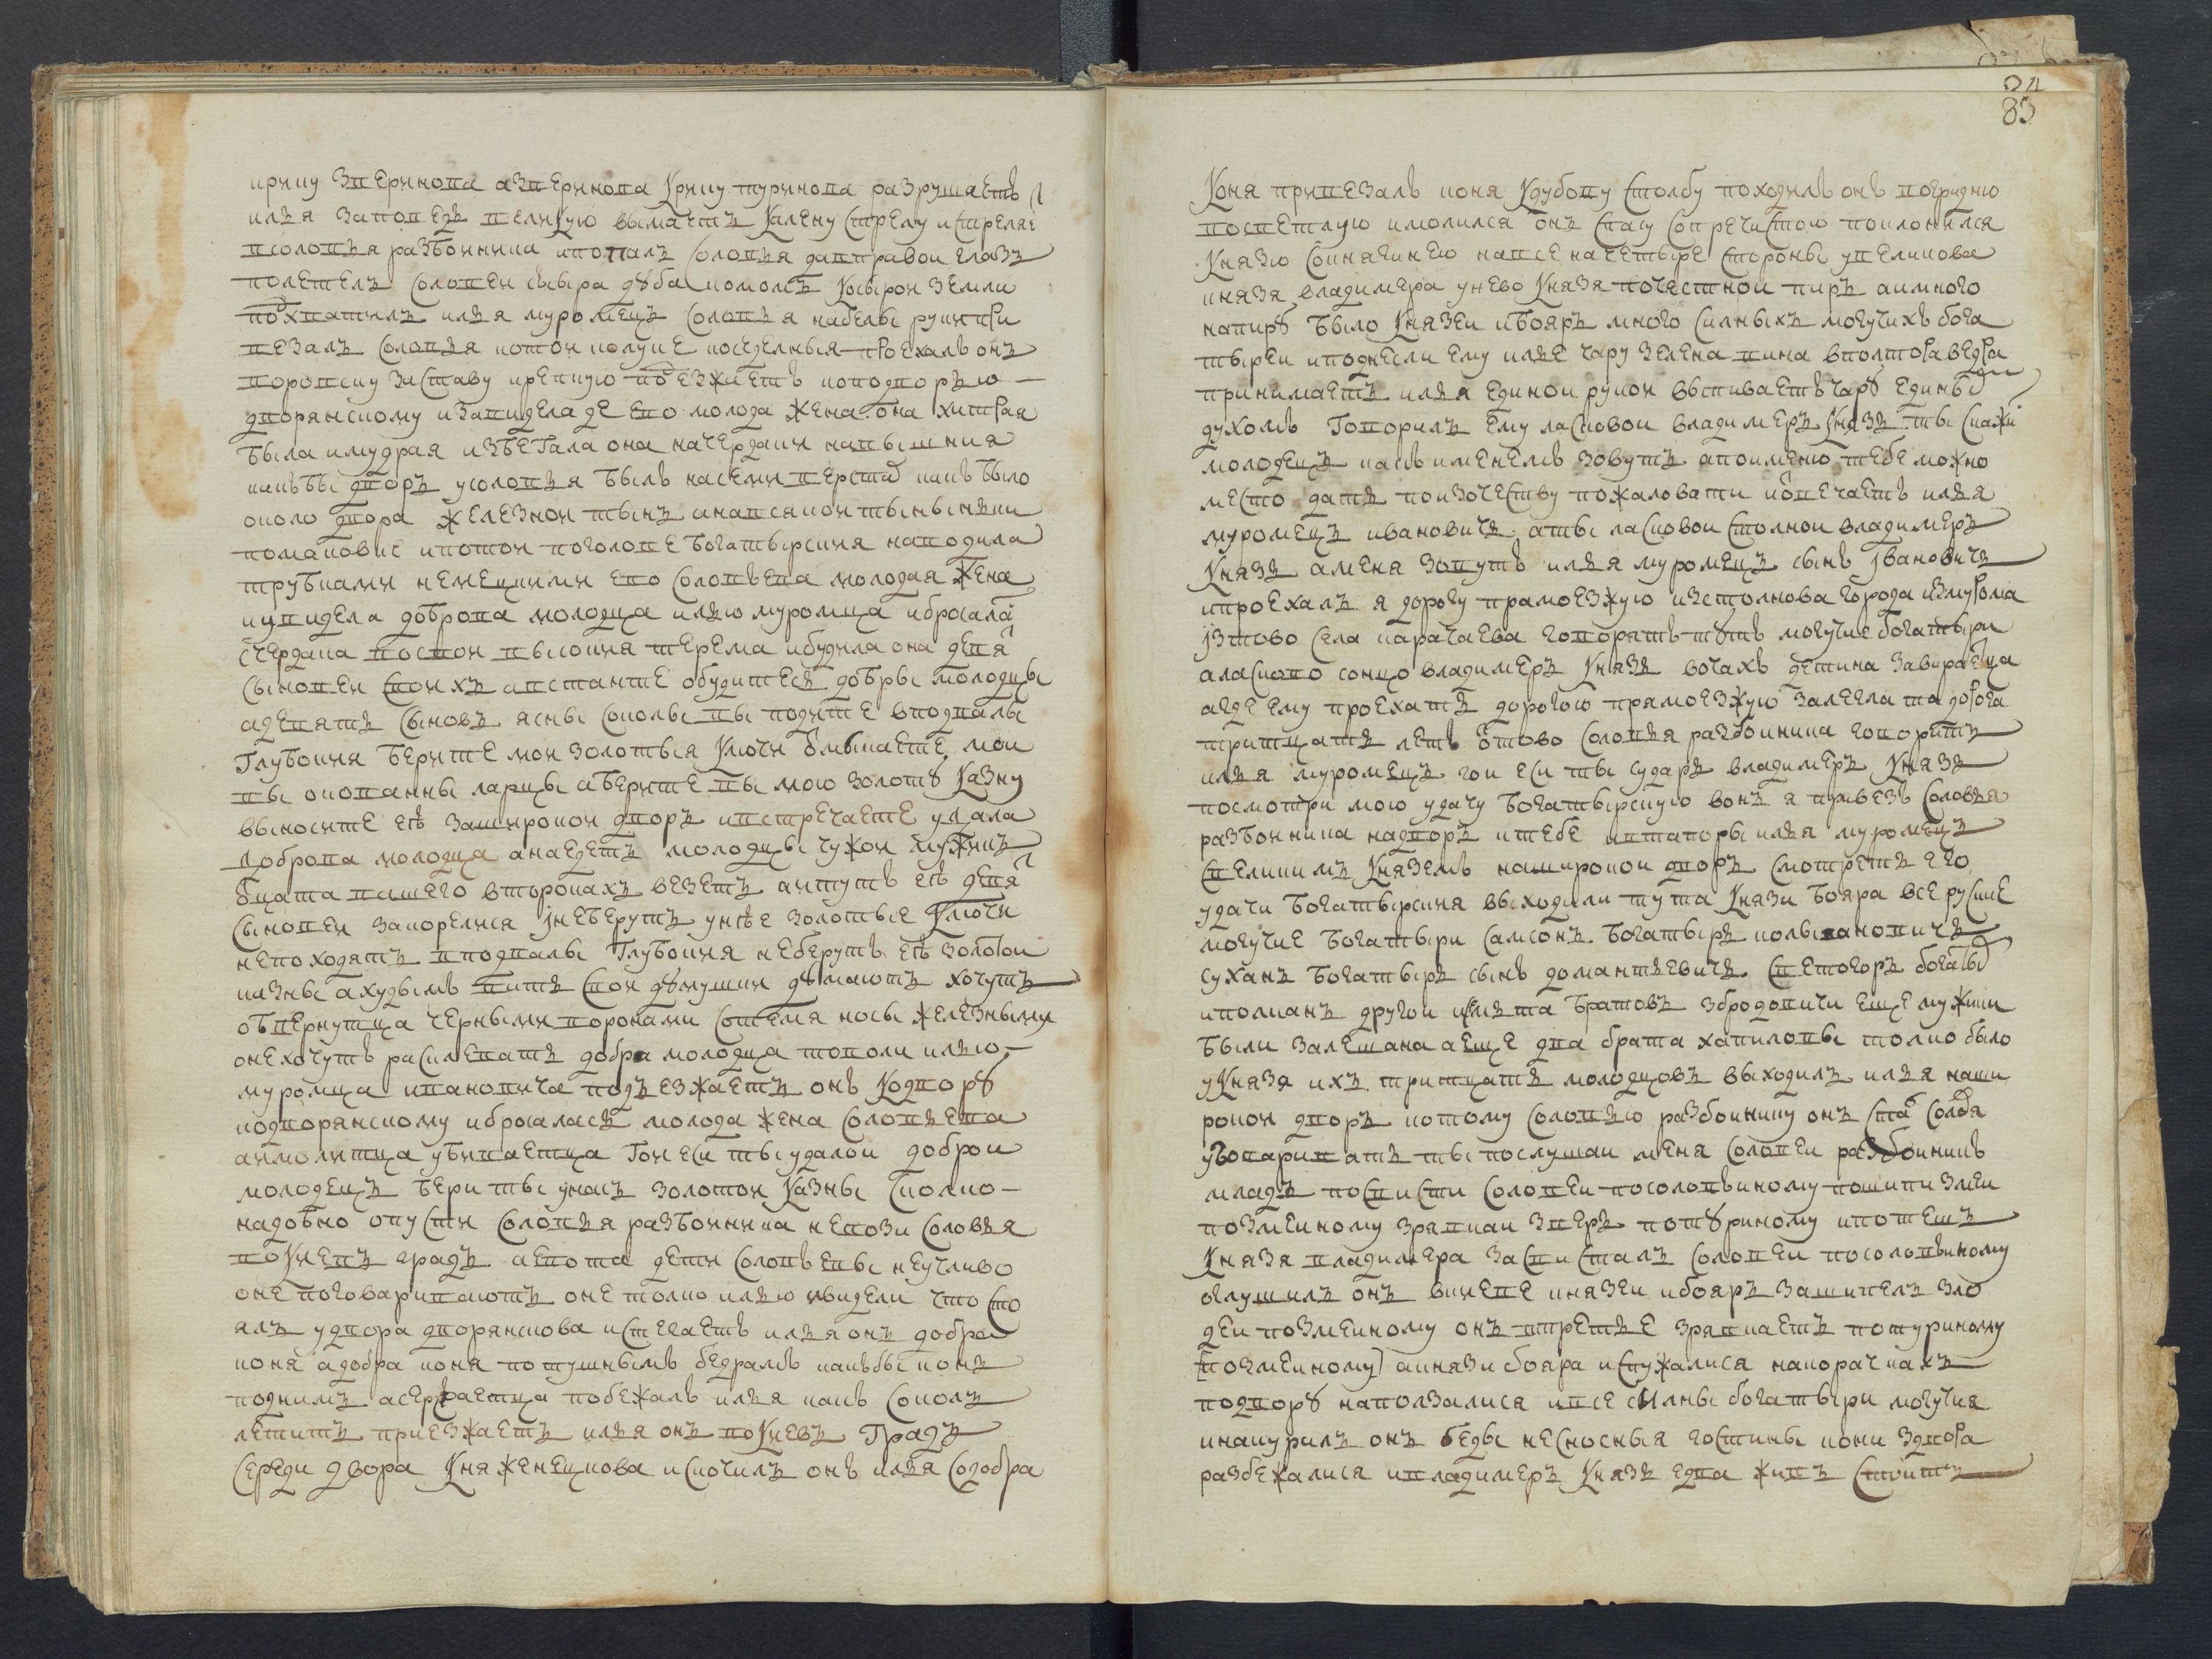 крику зверинова азверинова крику туринова разрушаетъ
илья заповедь великую вымаетъ калену стрелу истреляе
всоловья разбоиника ипопалъ соловья давправои глазъ
полетелъ соловеи ссыра дуба комомъ косырои земли
подхватилъ илья муромецъ соловья набелы руки при
везалъ соловья котои колуке коседелныя проехалъ онъ
воровску заставу крепкую подезжаетъ кподворью
дворянскому изавидела де ево молода жена она хитрая
была имудрая избегала она начердаки навышния
какъбы дворъ усоловья былъ насеми верстах какъ было
около двора железнои тынъ анавсякои тыныньки
помаковке ипотои поголове богатырския наводила
трубками немецкими ево соловьева молодая жена
иувидела доброва молодца илью муромца ибросалас
счердака воспои своихъ высокия терема ибудила она девя
сыновеи своихъ австанте обудитесь добры молодцы
адевять сыновъ ясны соколы вы подите вподвалы
глубокия берите мои золотыя ключи омыкаете мои
вы окованны ларцы аберите вы мою золоту казну
выносите её зашнрокои дворъ ивстречаете удала
доброва молодца анаедетъ молодцы чужои мужикъ
оцата вашего второкахъ везетъ аитутъ её девя
сыновеи закорелися інеберутъ унеё золотые ключи
непоходятъ вподвалы глубокия неберутъ её золотои
казны ахудымъ ведь свои думушки думаютъ хочутъ
обвернутца черными воронами сотемя носы железными
оне хочутъ расклевать добра молодца товоли илью
муромца ивановича подъезжаетъ онъ кодвору
кодворянскому ибросалась молода жена соловьева
аимолитца убиваетца гои еси ты удалои доброи
молодецъ бери ты унасъ золотои казны сколко
надобно опусти соловья разбоиника невози соловья
вокиевъ градъ аевота дети соловьевы неучливо
оне поговариваютъ оне толко илью ивидели что сто
ялъ удвора дворянскова истегаетъ илья онъ добра
коня адобра коня потушнымъ бедрамъ какъбы конь
подъ нимъ асержаетца побежалъ илья какъ соколъ
летитъ приезжаетъ илья онъ вокиевъ градъ
середи двора княженецкова искочилъ онъ илья содобра

84
83
коня привезалъ коня кдубову столбу походилъ онъ вогридню
восветлую имолился онъ спасу сопречистою поклонился
князю сокнягинею навсе начетыре стороны увеликова
князя владимера унево князя почестнои пиръ аимного
напиру было князеи ибояръ много силныхъ могучихъ бога
тыреи иподнесли ему илье чару зелена вина вполтора ведра
принимаетъ илья единои рукои выпиваетъ чару единым
духомъ говорилъ ему ласковои владимеръ князь ты скажи
молодецъ какъ именемъ зовутъ апоименю тебе можно
место дать поизочеству пожаловати иотвечаетъ илья
муромецъ ивановичь аты ласковои столнои владимеръ
князь аменя зовутъ илья муромецъ сынъ івановичь
ипроехалъ я дорогу прамоезжую изстолнова города измурома
ізтово села карачаева говорятъ тутъ могучие богатыри
аласково сонцо владимеръ князь вочахъ детина завираеца
агде ему проехать дорогою прямоезжую залегла та дорога
тритцать летъ отово соловья разбоиника говоритъ
илья муромецъ гои еси ты сударь владимеръ князь
посмотри мою удачу богатырскую вонъ я привезъ соловья
разбоиника надворъ ктебе ивтапоры илья муромецъ
свеликимъ княземъ наширокои дворъ смотреть его
удачи богатырския выходили тута князи бояра все руские
могучие богатыри самсонъ богатырь колывановичь
суханъ богатырь сынъ домантьевичь светогоръ богаты
иполканъ другои исемьта братовъ збродовичи еще мужики
были залешана аеще два брата хапиловы толко было
укнязя ихъ тритцать молодцовъ выходилъ илья наши
рокои дворъ ктому соловью разбоинику онъ ста солов
уговаривать ты послушаи меня соловеи разбоиникъ
младъ посвисти соловеи посоловьиному пошипи змеи
позмеиному зрявкаи зверь потуриному ипотешь
князя владимера засвисталъ соловеи посоловьиному
оглушилъ онъ вкиеве князеи ибояръ зашипелъ зло
деи позмеиному онъ втретье зрявкаетъ потуриному
[позмеиному] акнязи бояра испужалися накорачкахъ
подвору наползалися ивсе силны богатыри могучия
инакурилъ онъ беды несносныя гостины кони здвора
разбежалися ивладимеръ князь едва живъ стоитъ